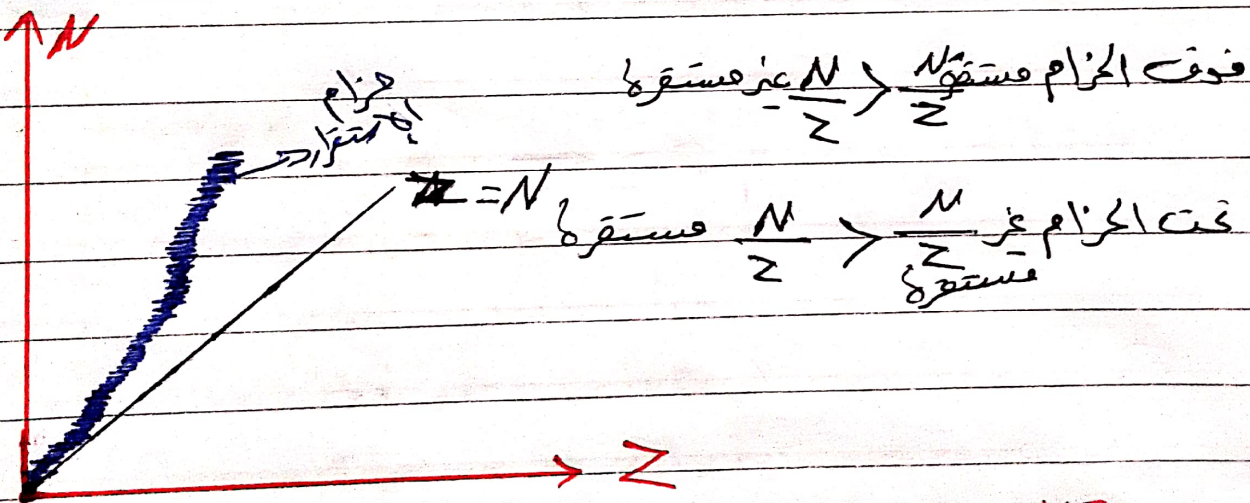 N
حزام
إستقرار
Z = N
فوق الحزام مستقرة N/Z > N/Z غير مستقرة
تحت الحزام غير مستقرة N/Z < N/Z مستقرة
Z